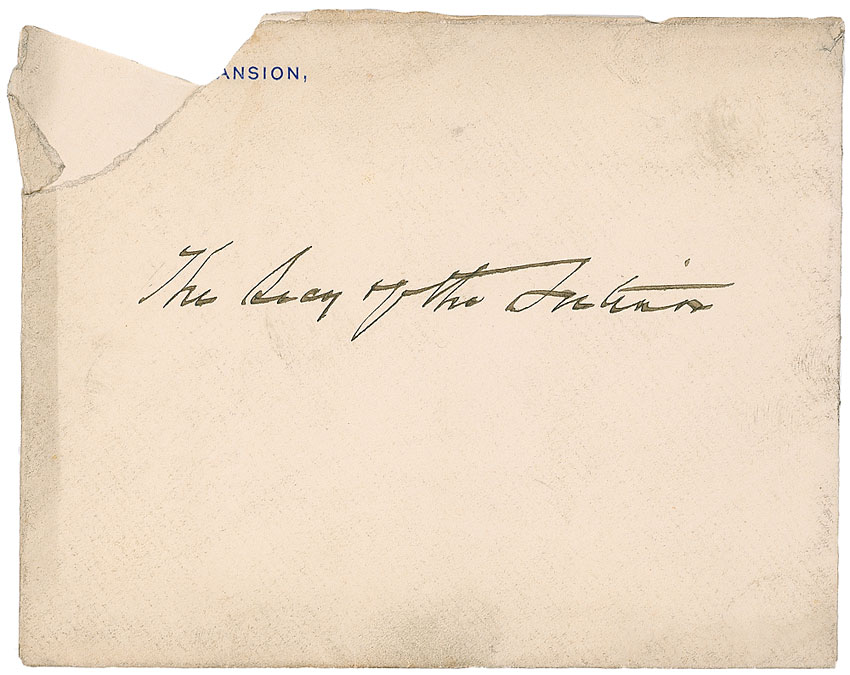 ANSION,
The Secy of the Interior